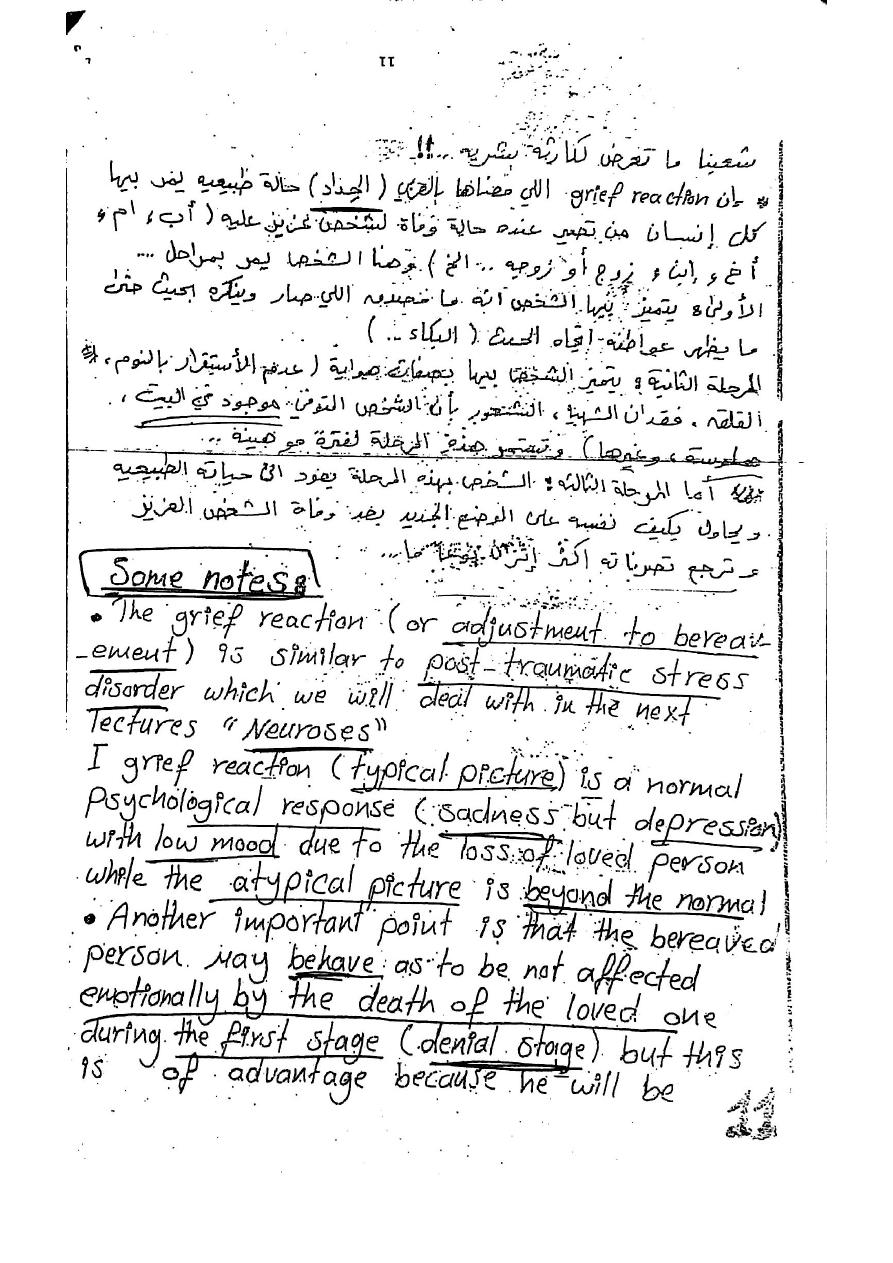 11
شعبنا ما تعرض لكارثة بشريه ..!!
* إن grief reaction اللي معناها بالعربي (الحِداد) حالة طبيعيه يمر بيها
كل إنسان من تصير عنده حالة وفاة لشخص عزيز عليه (أب، ام،
أخ، إبن، زوج أو زوجه .. الخ) وهنا الشخص يمر بمراحل ...
الأولى: يتميز بيها الشخص انه ما مصدق اللي صار وينكره بحيث حتى
ما يظهر عواطفه اتجاه الحدث (البكاء ..)
المرحلة الثانية: يتميز الشخص بيها بصفات (عدم الأستقرار بالنوم،
القلق، فقدان الشهية، الشعور بأن الشخص المتوفى موجود في البيت،
وغيرها) وتستمر هذه المرحلة لفترة ..
أما المرحلة الثالثه: الشخص بهذه المرحلة يعود الى حياته الطبيعيه
ويحاول يكيف نفسه على الوضع الجديد بعد وفاة الشخص العزيز
وترجع تصرفاته اكثر إتزان ...
Some notes:
• The grief reaction (or adjustment to bereav-
-ement) is similar to post-traumatic stress
disorder which we will deal with in the next
lectures "Neuroses"
I grief reaction (typical picture) is a normal
Psychological response (sadness but depression)
with low mood due to the loss of loved person
while the atypical picture is beyond the normal
• Another important point is that the bereaved
person may behave as to be not affected
emotionally by the death of the loved one
during the first stage (denial stage) but this
is of advantage because he will be
11